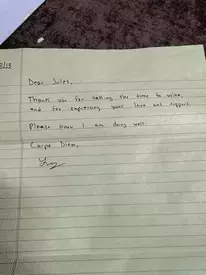 /18
Dear Jules,
Thank you for taking the time to write,
and for expressing your love and support.
Please know I am doing well.
Carpe Diem,